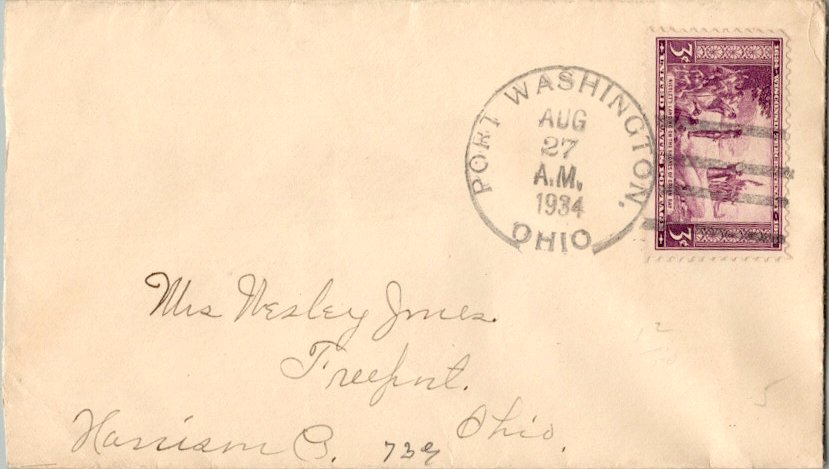 PORT WASHINGTON,
AUG
27
A.M.
1934
OHIO
3¢
UNITED STATES POSTAGE
3¢
Mrs Wesley Jones
Freeport.
Harrison Co. 739 Ohio.